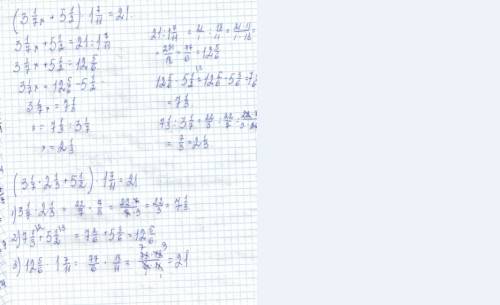 (3 1/7 x + 5 1/2) · 1 7/11 = 21
3 1/7 x + 5 1/2 = 21 : 1 7/11
3 1/7 x + 5 1/2 = 12 5/6
3 1/7 x = 12 5/6 - 5 1/2
3 1/7 x = 7 1/3
x = 7 1/3 : 3 1/7
x = 2 1/3
21 : 1 7/11 = 21/1 : 18/11 = 21·11/1·18 =
= 231/18 = 77/6 = 12 5/6
12 5/6 - 5 1/2 = 12 5/6 - 5 3/6 = 7
= 7 1/3
7 1/3 : 3 1/7 = 22/3 : 22/7 =
= 7/3 = 2 1/3
(3 1/7 · 2 1/3 + 5 1/2) · 1 7/11 = 21
1) 3 1/7 · 2 1/3 = 22/7 · 7/3 = 22·7/7·3 = 22/3 = 7 1/3
2) 7 1/3 + 5 1/2 = 7 2/6 + 5 3/6 = 12 5/6
3) 12 5/6 · 1 7/11 = 77/6 · 18/11 = 77·18/6·11 = 21